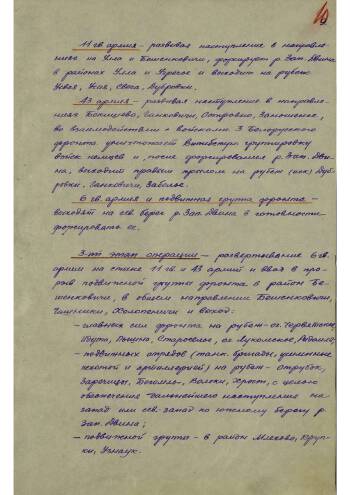 10
11 гв. армия - развивая наступление в направле-
ниях на Улла и Бешенковичи, форсирует р. Зап. Двина
в районах Улла и и выходит на рубеж
Свеча, Дубровки.
43 армия - развивая наступление в направле-
ниях Островно,
во взаимодействии с войсками 3 Белорусского
фронта уничтожает Витебскую группировку
войск немцев и, после форсирования р. Зап. Дви-
на, выходит правым крылом на рубеж (иск) Дуб-
ровки, Санковичи, Заболье.
6 гв. армия и подвижная группа фронта -
выходят на сев. берег р. Зап. Двина в готовности
форсировать ее.
3-ий этап операции - развертывание 6 гв.
армии на стыке 11 гв. и 43 армий и ввод в про-
рыв подвижной группы фронта в район Бе-
шенковичи, в общем направлении Бешенковичи,
Чашники, Холопеничи и выход:
- главных сил фронта на рубеж - оз.
Староселье, оз. Лукомское,
- подвижных отрядов (танк. бригады, усиленные
пехотой и артиллерией) на рубеж -
с целью
обеспечения дальнейшего наступления на
запад или сев. запад по южному берегу р.
Зап. Двина;
- подвижной группы - в район Круп-
ки,